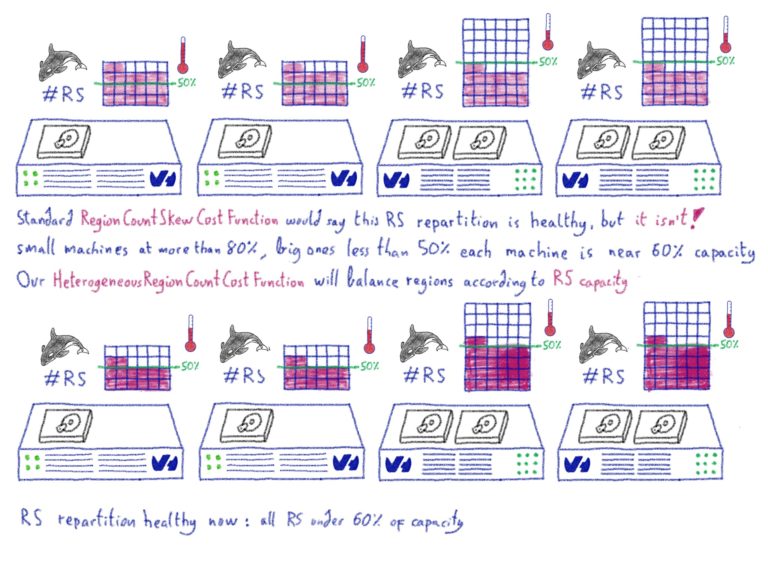 50% 50% 50% 50%
#RS #RS #RS #RS
Standard RegionCountSkewCostFunction would say this RS repartition is healthy, but it isn't!
small machines at more than 80%, big ones less than 50% each machine is near 60% capacity
Our HeterogeneousRegionCountCostFunction will balance regions according to RS capacity
50% 50% 50% 50%
#RS #RS #RS #RS
RS repartition healthy now: all RS under 60% of capacity